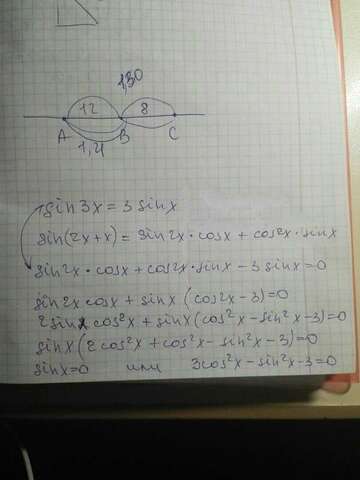 1,30
12 8
A B C
1,4
sin3x = 3sinx
sin(2x+x) = sin2x·cosx + cos2x·sinx
sin2x·cosx + cos2x·sinx - 3sinx = 0
sin2x cosx + sinx (cos2x - 3) = 0
2sinx cos²x + sinx (cos²x - sin²x - 3) = 0
sinx (2cos²x + cos²x - sin²x - 3) = 0
sinx = 0 или 3cos²x - sin²x - 3 = 0